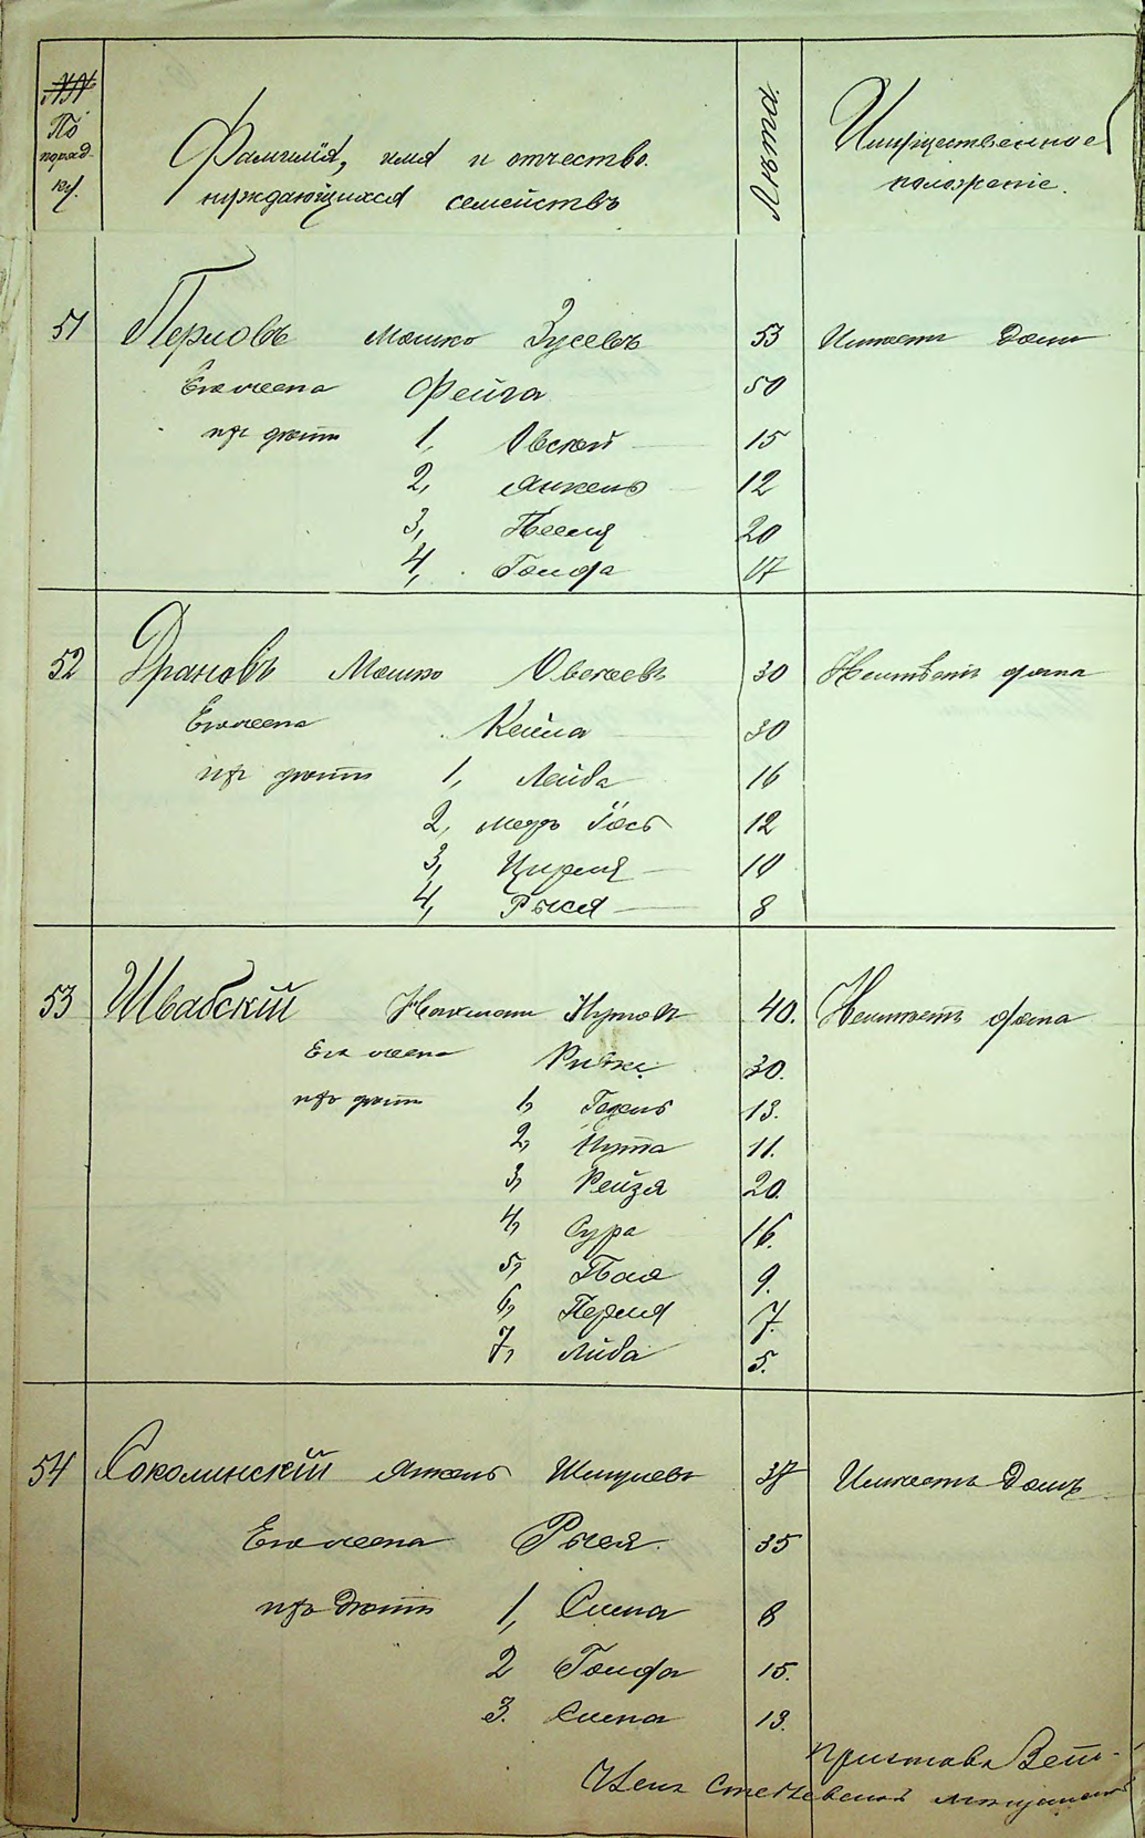 №№
По
поряд-
ку.
Фамилія, имя и отчество
нуждающихся семействъ
Лѣта.
Имущественное
положеніе.
51 Перловъ Мошко Зусевъ 53 Имѣетъ домъ
Его жена Фейга 50
ихъ дѣти 1, Овсей 15
2, Янкель 12
3, Песля 20
4, Голда 17
52 Драновъ Мошко Овсеевъ 30 Неимѣетъ дома
Его жена Кейла 30
ихъ дѣти 1, Лейба 16
2, Іось 12
3, Цирля 10
4, Рыся 8
53 Швабскій Нохимъ 40. Неимѣетъ дома
Его жена Ривка 30.
ихъ дѣти 1, 13.
2, Нута 11.
3, Рейзя 20.
4, Сура 16.
5, 9.
6, Перля 7.
7, Либа 5.
54 Соколинскій Янкель Шмуйлевъ 37 Имѣетъ домъ
Его жена Рыся 35
ихъ дѣти 1, 8
2 Голда 15.
3. 13.
Пристава
Членъ